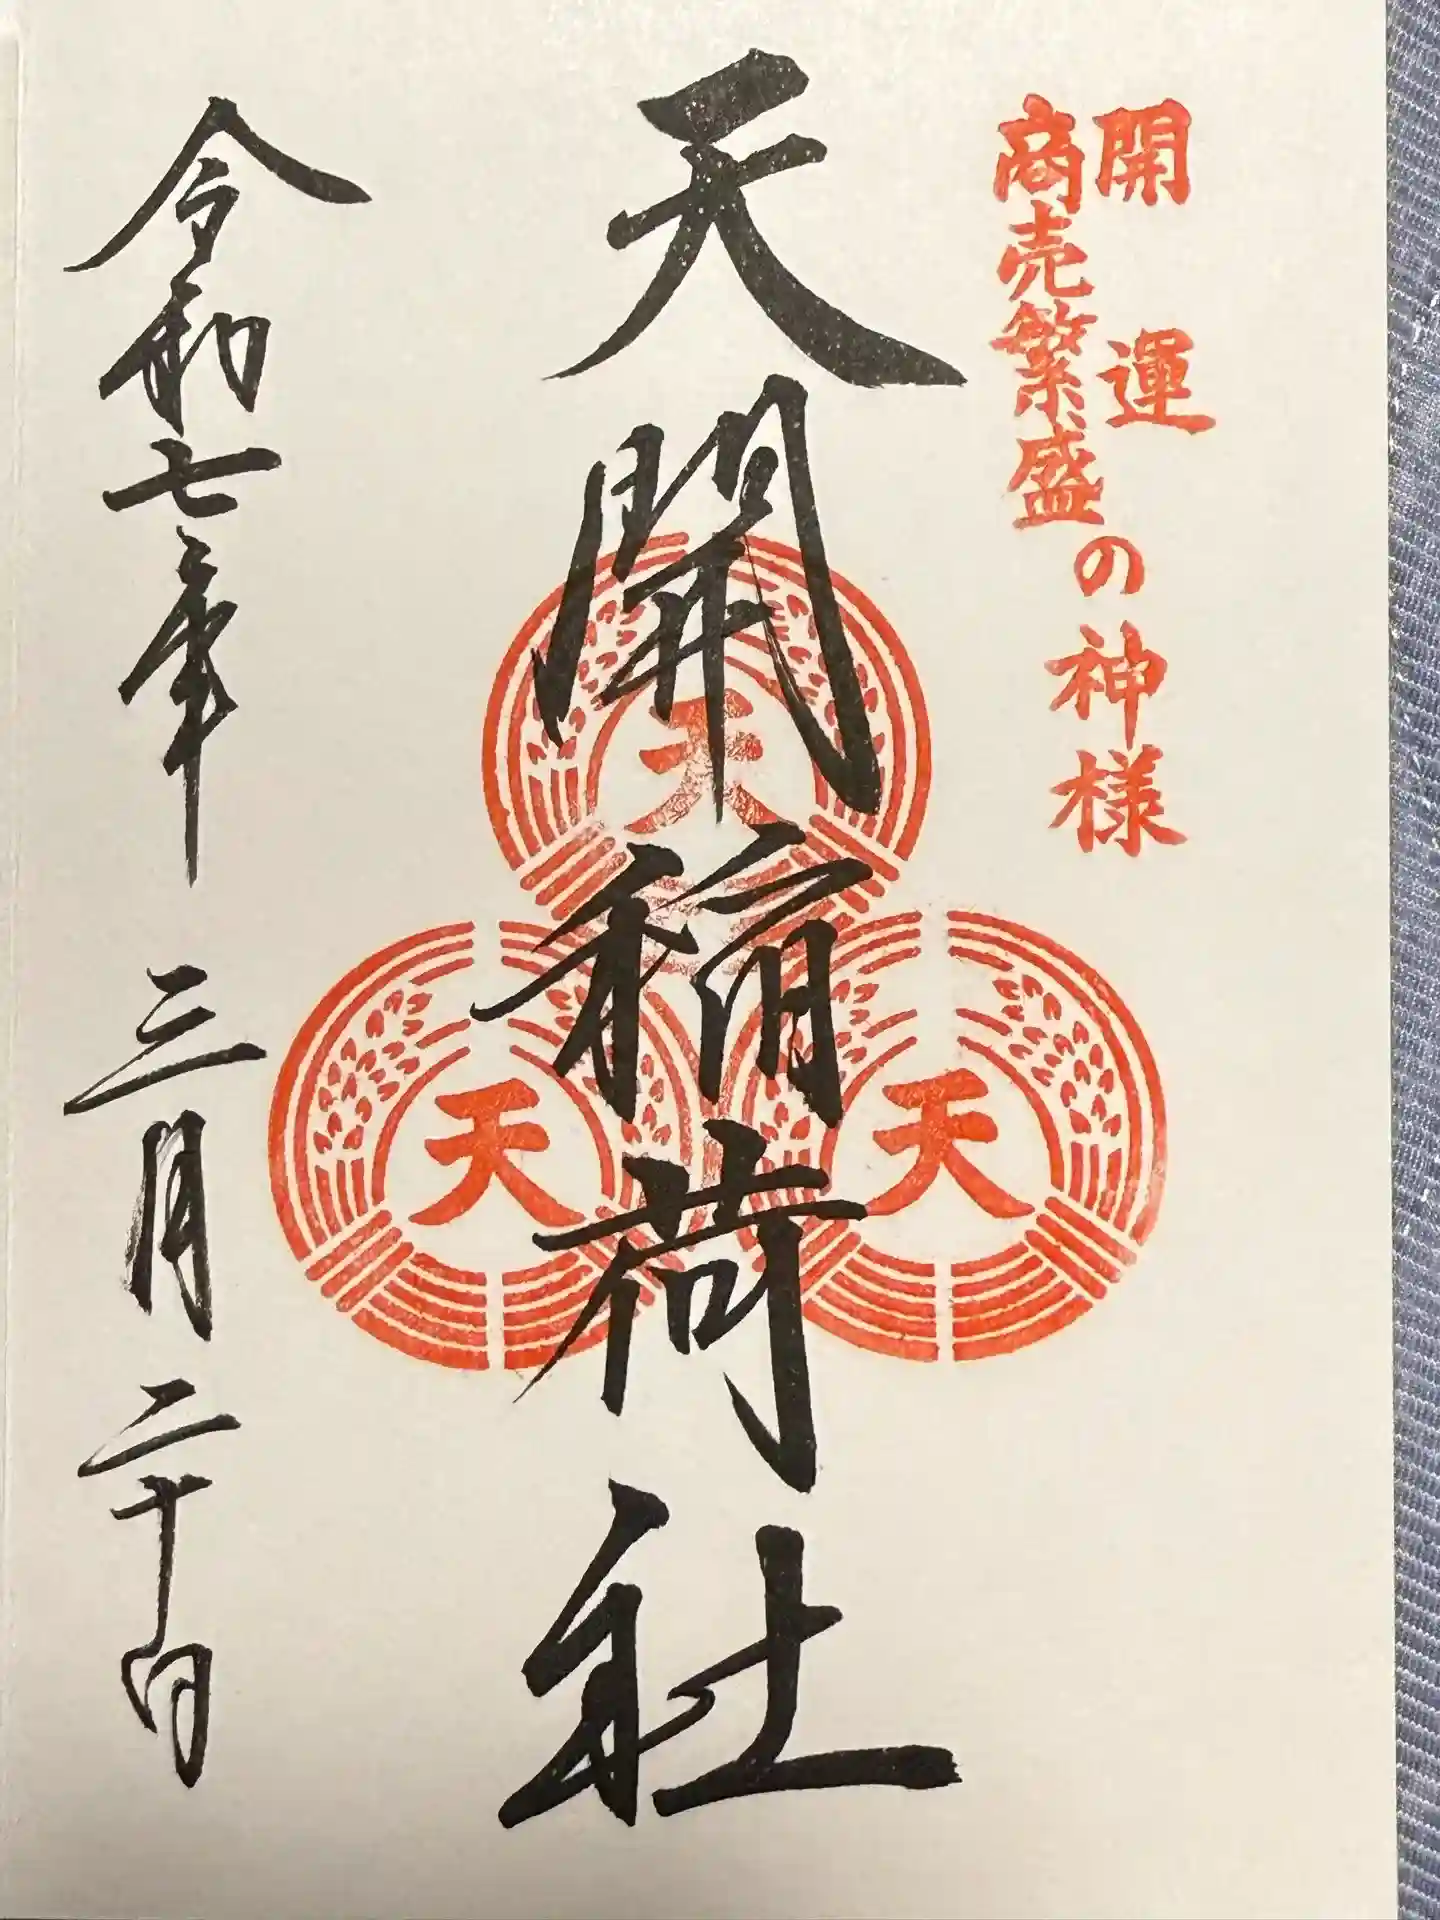 開運
商売繁盛
の神様
天開稲荷社
天
天
天
令和七年 三月 二十日